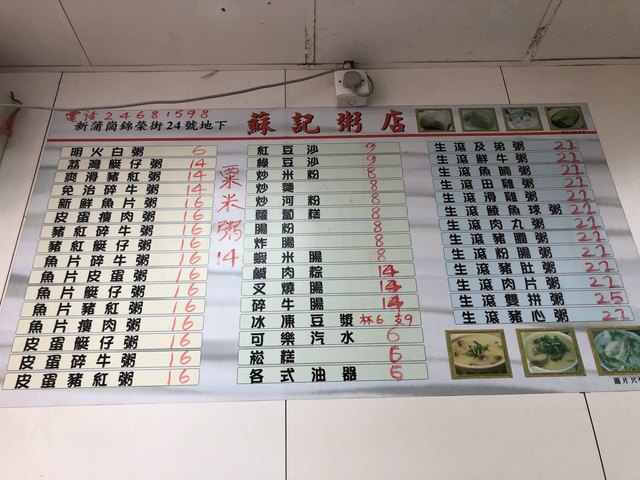 電話24681598
新蒲崗錦榮街24號地下
蘇記粥店
明火白粥 6
荔灣艇仔粥 14
爽滑豬紅粥 14
免治碎牛粥 14
新鮮魚片粥 16
皮蛋瘦肉粥 16
豬紅碎牛粥 16
豬紅艇仔粥 16
魚片碎牛粥 16
魚片皮蛋粥 16
魚片艇仔粥 16
魚片豬紅粥 16
魚片瘦肉粥 16
皮蛋艇仔粥 16
皮蛋碎牛粥 16
皮蛋豬紅粥 16
粟米粥 14
紅豆沙 9
綠豆沙 9
炒米粉 8
炒麵 8
炒河粉 8
蘿蔔糕 8
腸粉 8
炸腸 8
蝦米腸 8
鹹肉粽 14
叉燒腸 14
碎牛腸 14
冰凍豆漿 杯6 支9
可樂汽水 6
崧糕 6
各式油器 6
生滾及弟粥 22
生滾鮮牛粥 22
生滾魚腩粥 22
生滾田雞粥 22
生滾滑雞粥 22
生滾鯪魚球粥 22
生滾肉丸粥 22
生滾豬膶粥 22
生滾粉腸粥 22
生滾豬肚粥 22
生滾肉片粥 22
生滾雙拼粥 25
生滾豬心粥 22
圖片只